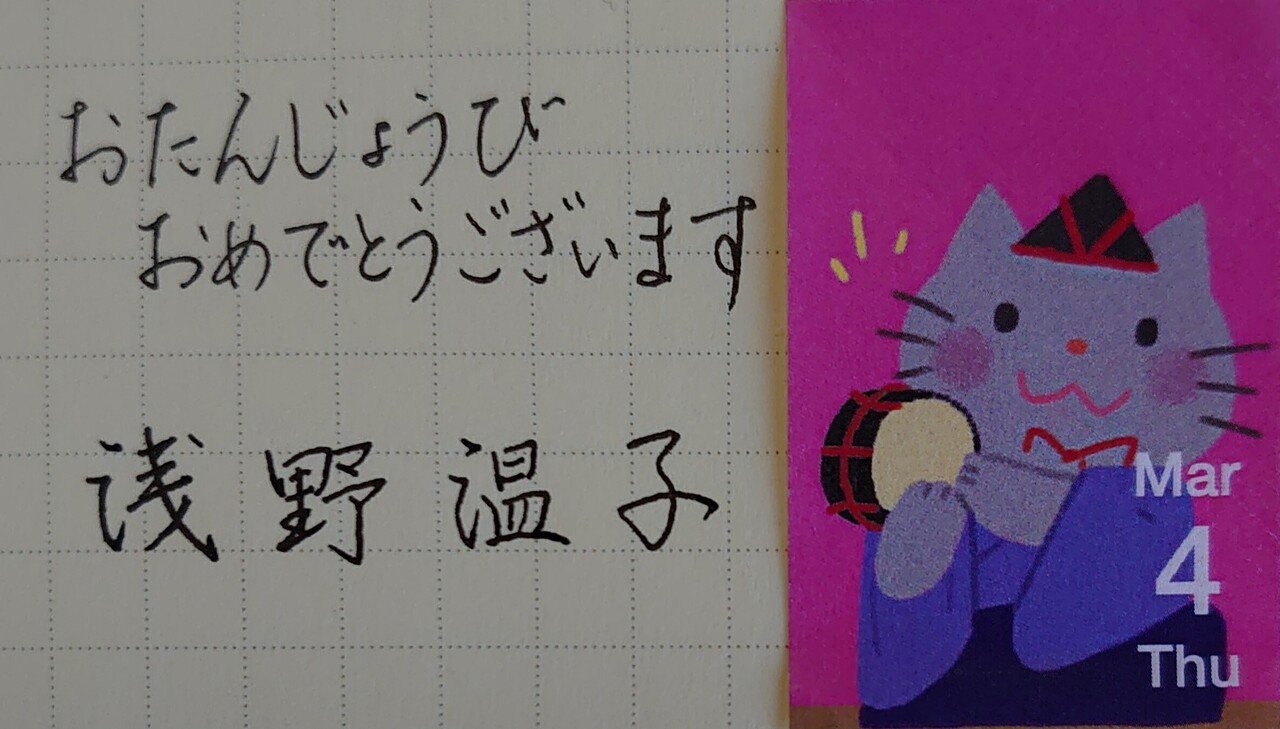 おたんじょうび
おめでとうございます
浅野温子
Mar
4
Thu